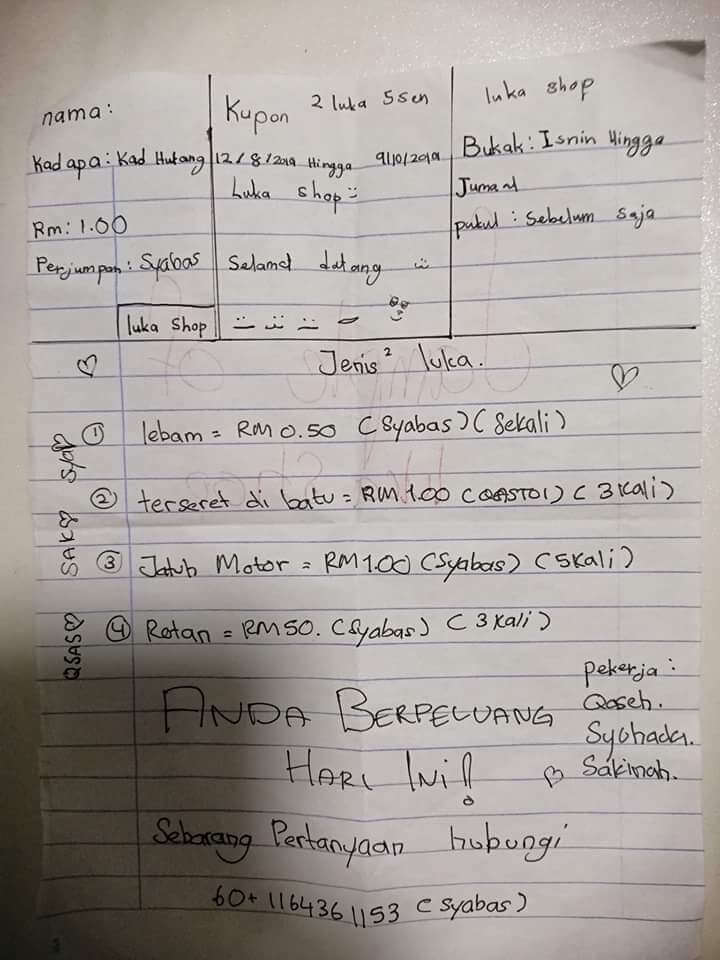 nama:
Kad apa: Kad Hutang
Rm: 1.00
Perjumpan: Syabas
luka shop
Kupon 2 luka 5sen
12/8/2019 Hingga 9/10/2019
Luka shop
Selamat datang
luka shop
Bukak: Isnin Hingga
Jumaat
pukul: Sebelum saja
Jenis² luka.
① lebam = RM 0.50 (Syabas) (Sekali)
② terseret di batu = RM 1.00 (QASTOI) (3 Kali)
③ Jatuh Motor = RM 1.00 (Syabas) (5 Kali)
④ Rotan = RM 50. (Syabas) (3 Kali)
QSAS SAK Syaf
ANDA BERPELUANG
HARI INI!
pekerja:
Qaseh.
Syuhada.
Sakinah.
Sebarang Pertanyaan hubungi
60+ 11643611153 (Syabas)